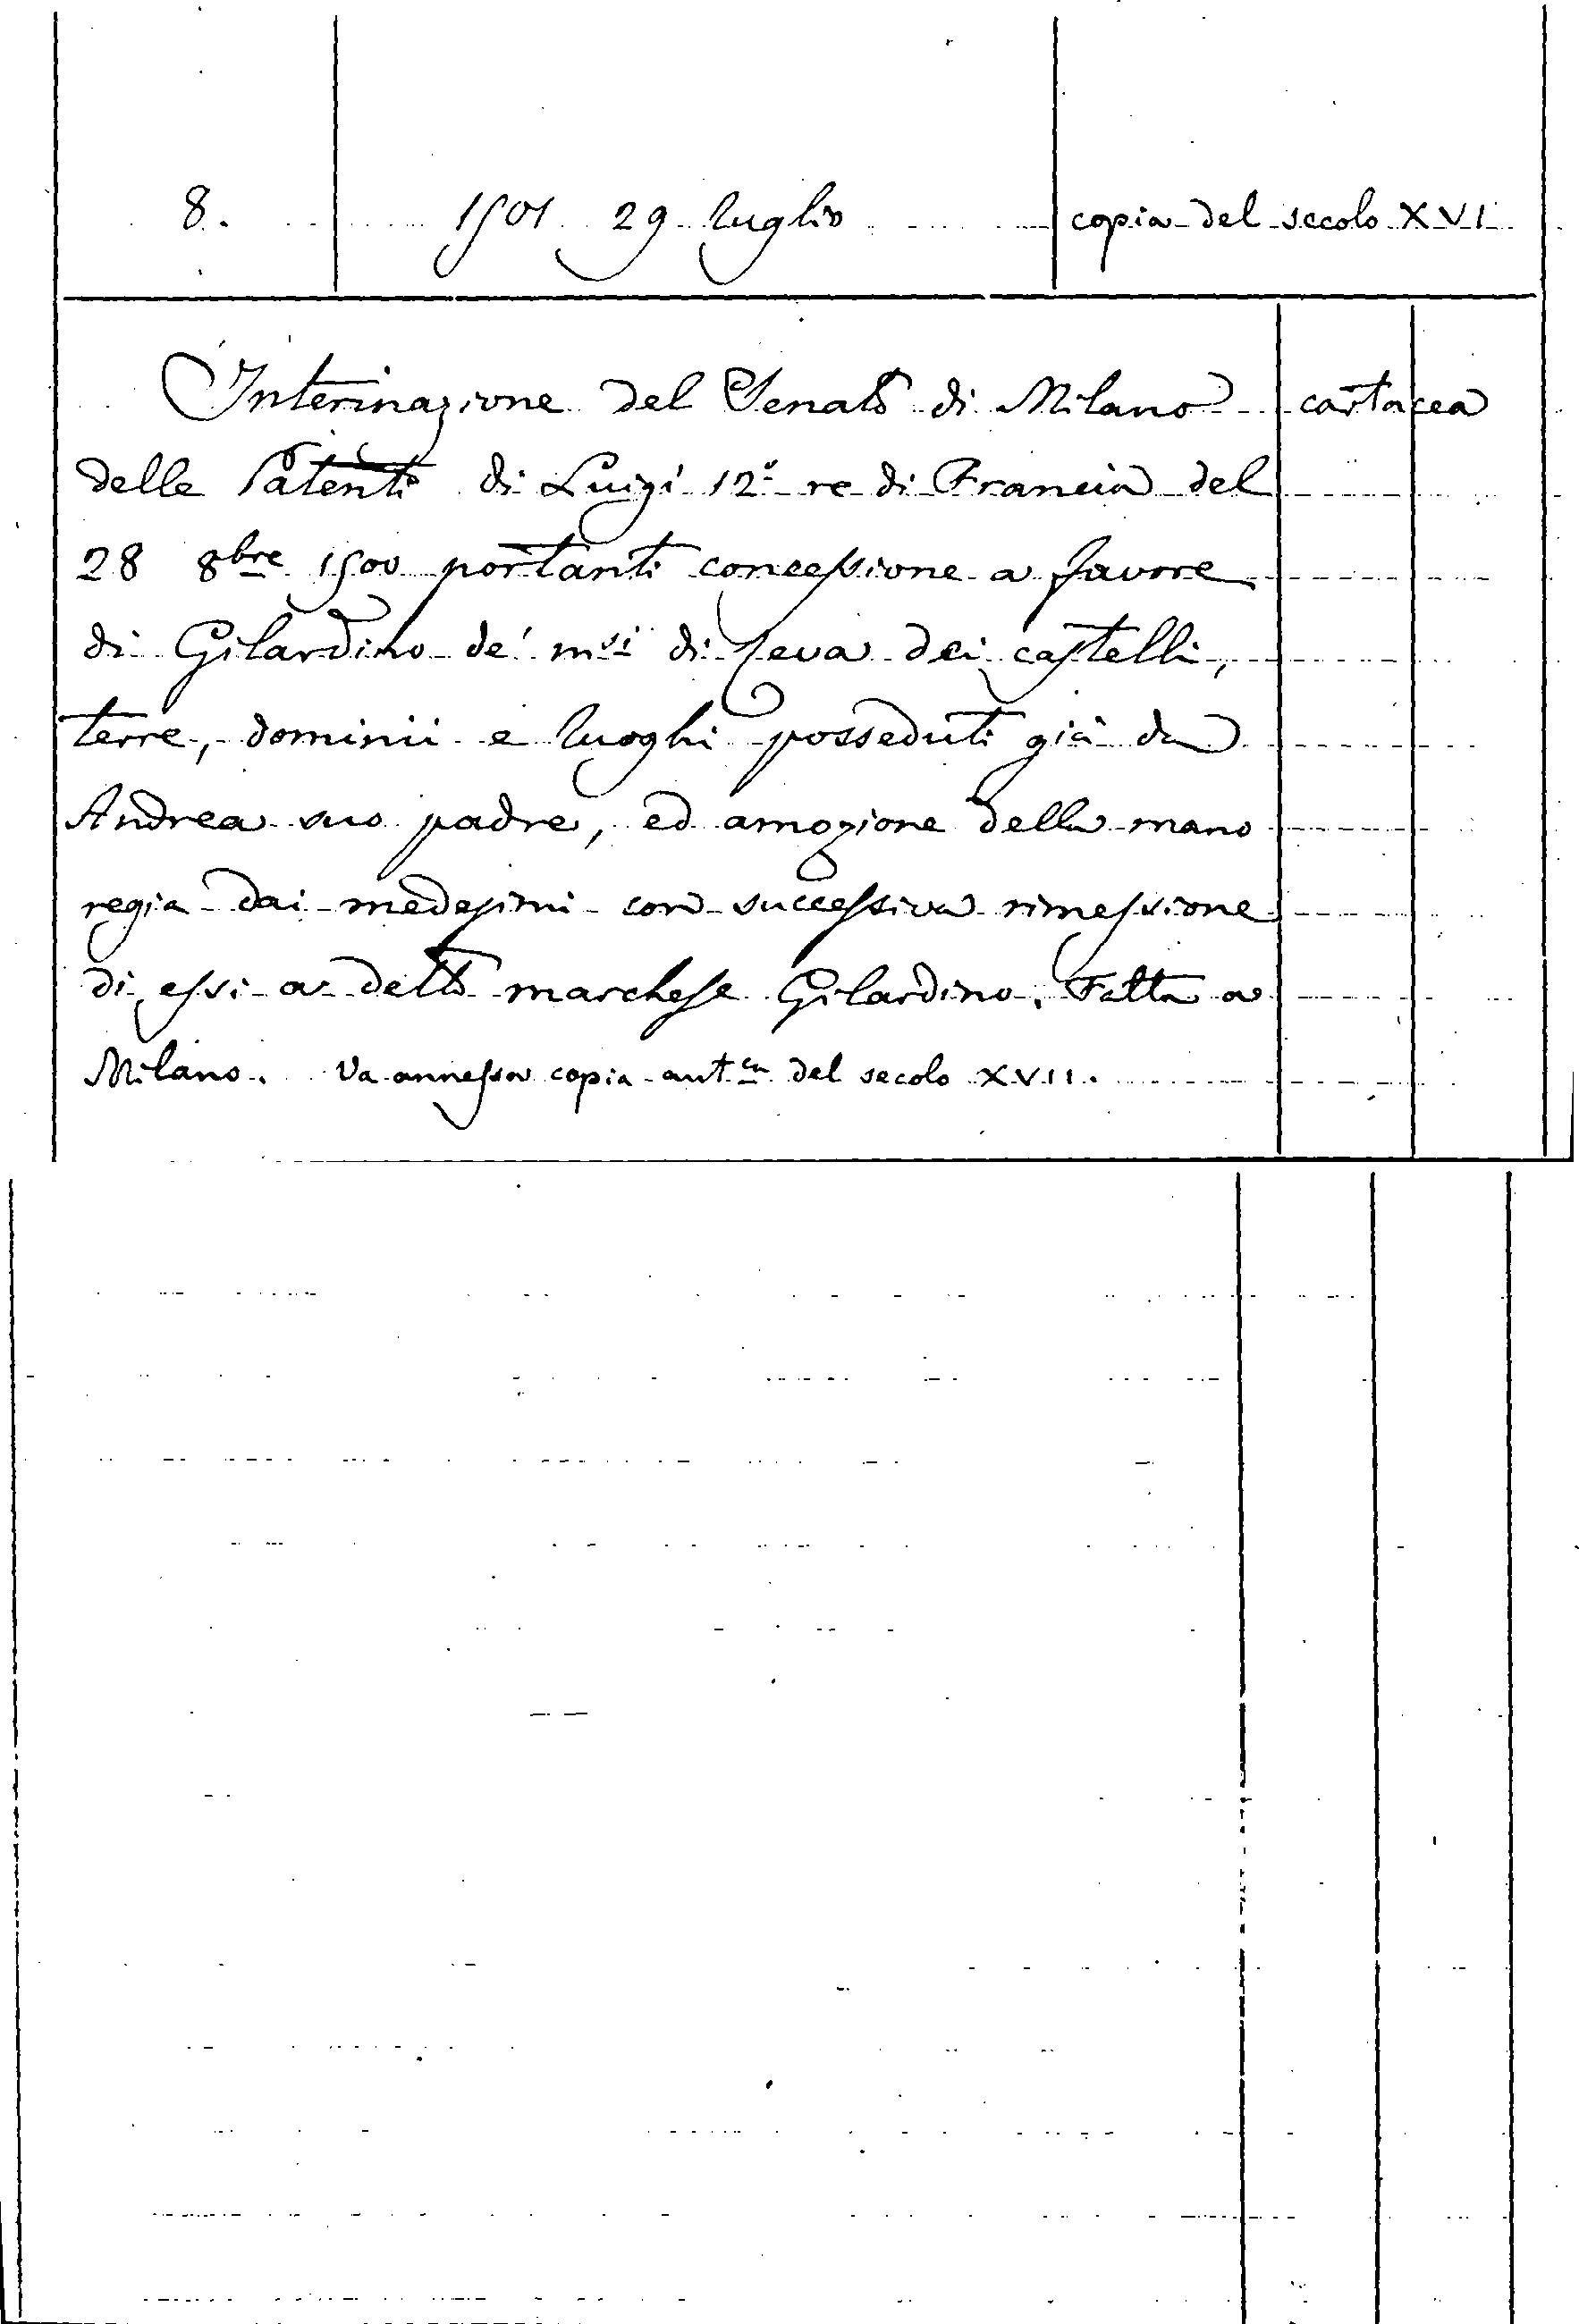 8. 1501 29 luglio copia del secolo XVI
Interinazione del Senato di Milano cartacea
delle Patenti di Luigi 12º re di Francia del
28 8bre 1500 portanti concessione a favore
di Gilardino de' msi di Ceva dei castelli,
terre, dominii e luoghi posseduti già da
Andrea suo padre, ed amozione della mano
regia dai medesimi con successiva rimessione
di essi a detto marchese Gilardino. Fatta a
Milano. Va annessa copia autca del secolo XVII.